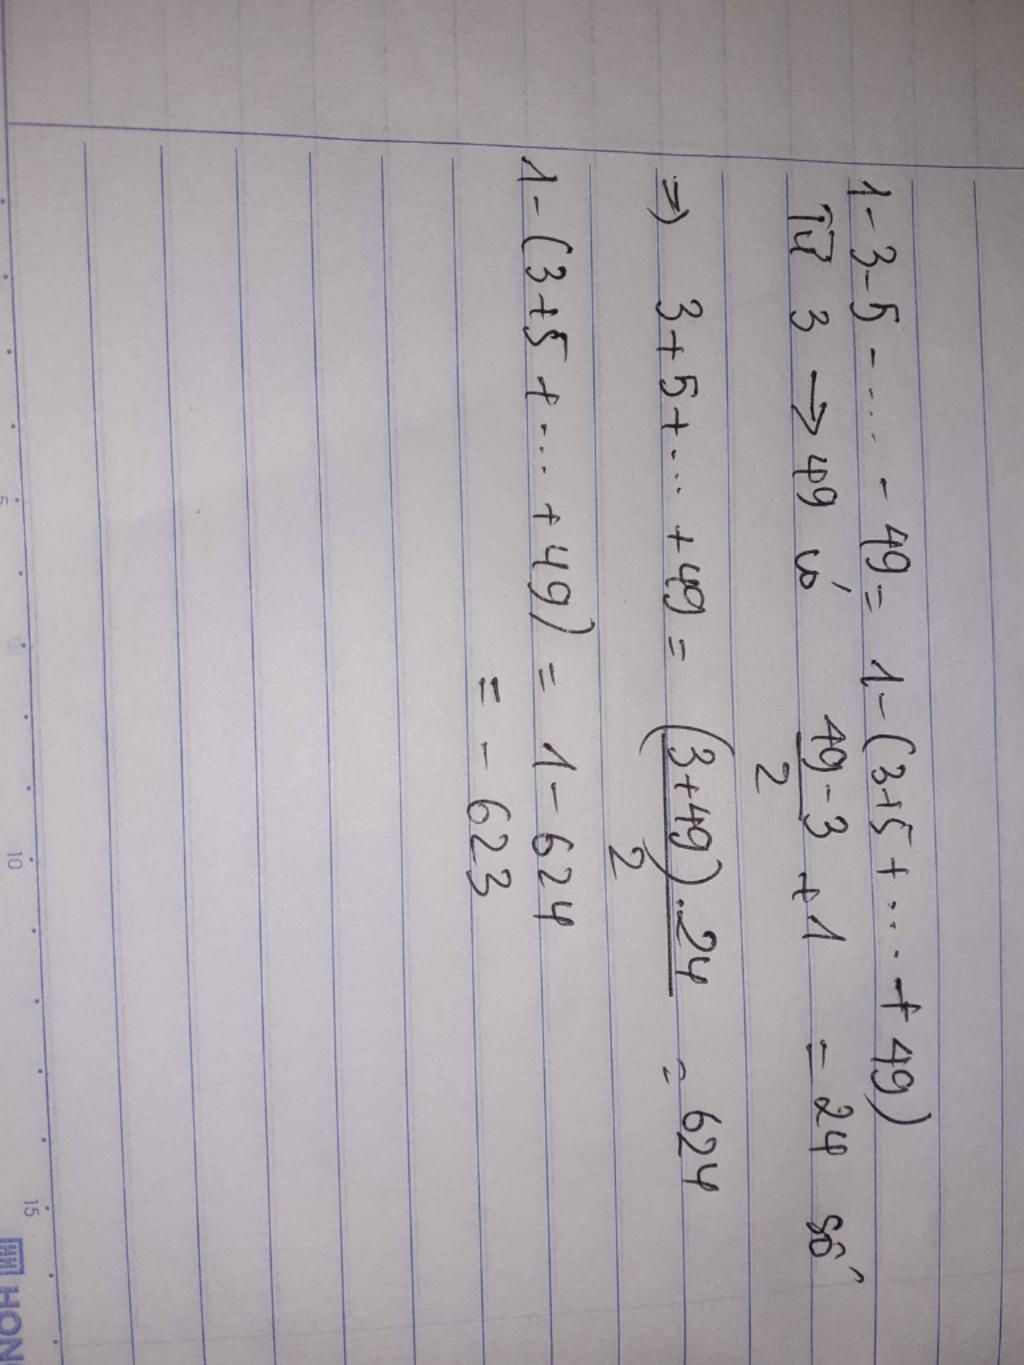 1-3-5-....-49= 1-(3+5+...+49)
Từ 3 → 49 có (49-3)/2 +1 = 24 số
=> 3+5+...+49 = ((3+49).24)/2 = 624
1-(3+5+...+49) = 1-624
= -623
5
10
15
HON